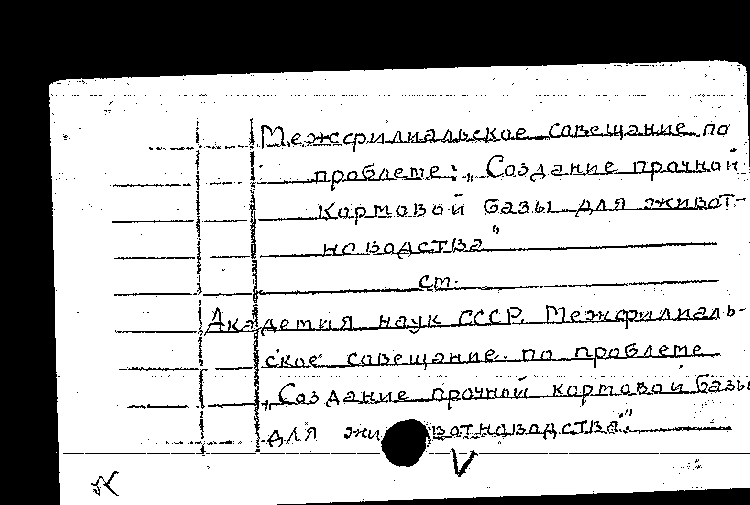 Межфилиальское совещание по
проблеме: „Создание прочной
кормовой базы для живот-
новодства"
см.
Академия наук СССР. Межфилиаль-
ское совещание по проблеме
„Создание прочной кормовой базы
для животноводства."